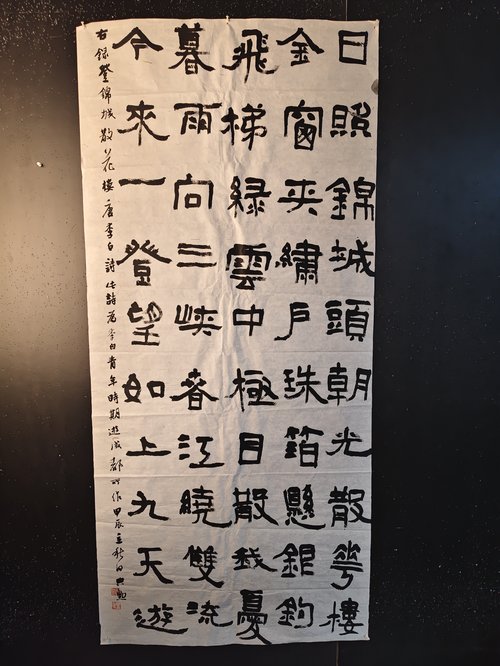 日照錦城頭朝光散華樓
金窗夾繡戶珠箔懸銀鉤
飛梯綠雲中極目散我憂
暮雨向三峽春江繞雙流
今來一登望如上九天遊
右錄登錦城散花樓唐李白詩此詩為李白青年時期遊成都所作甲辰立秋日